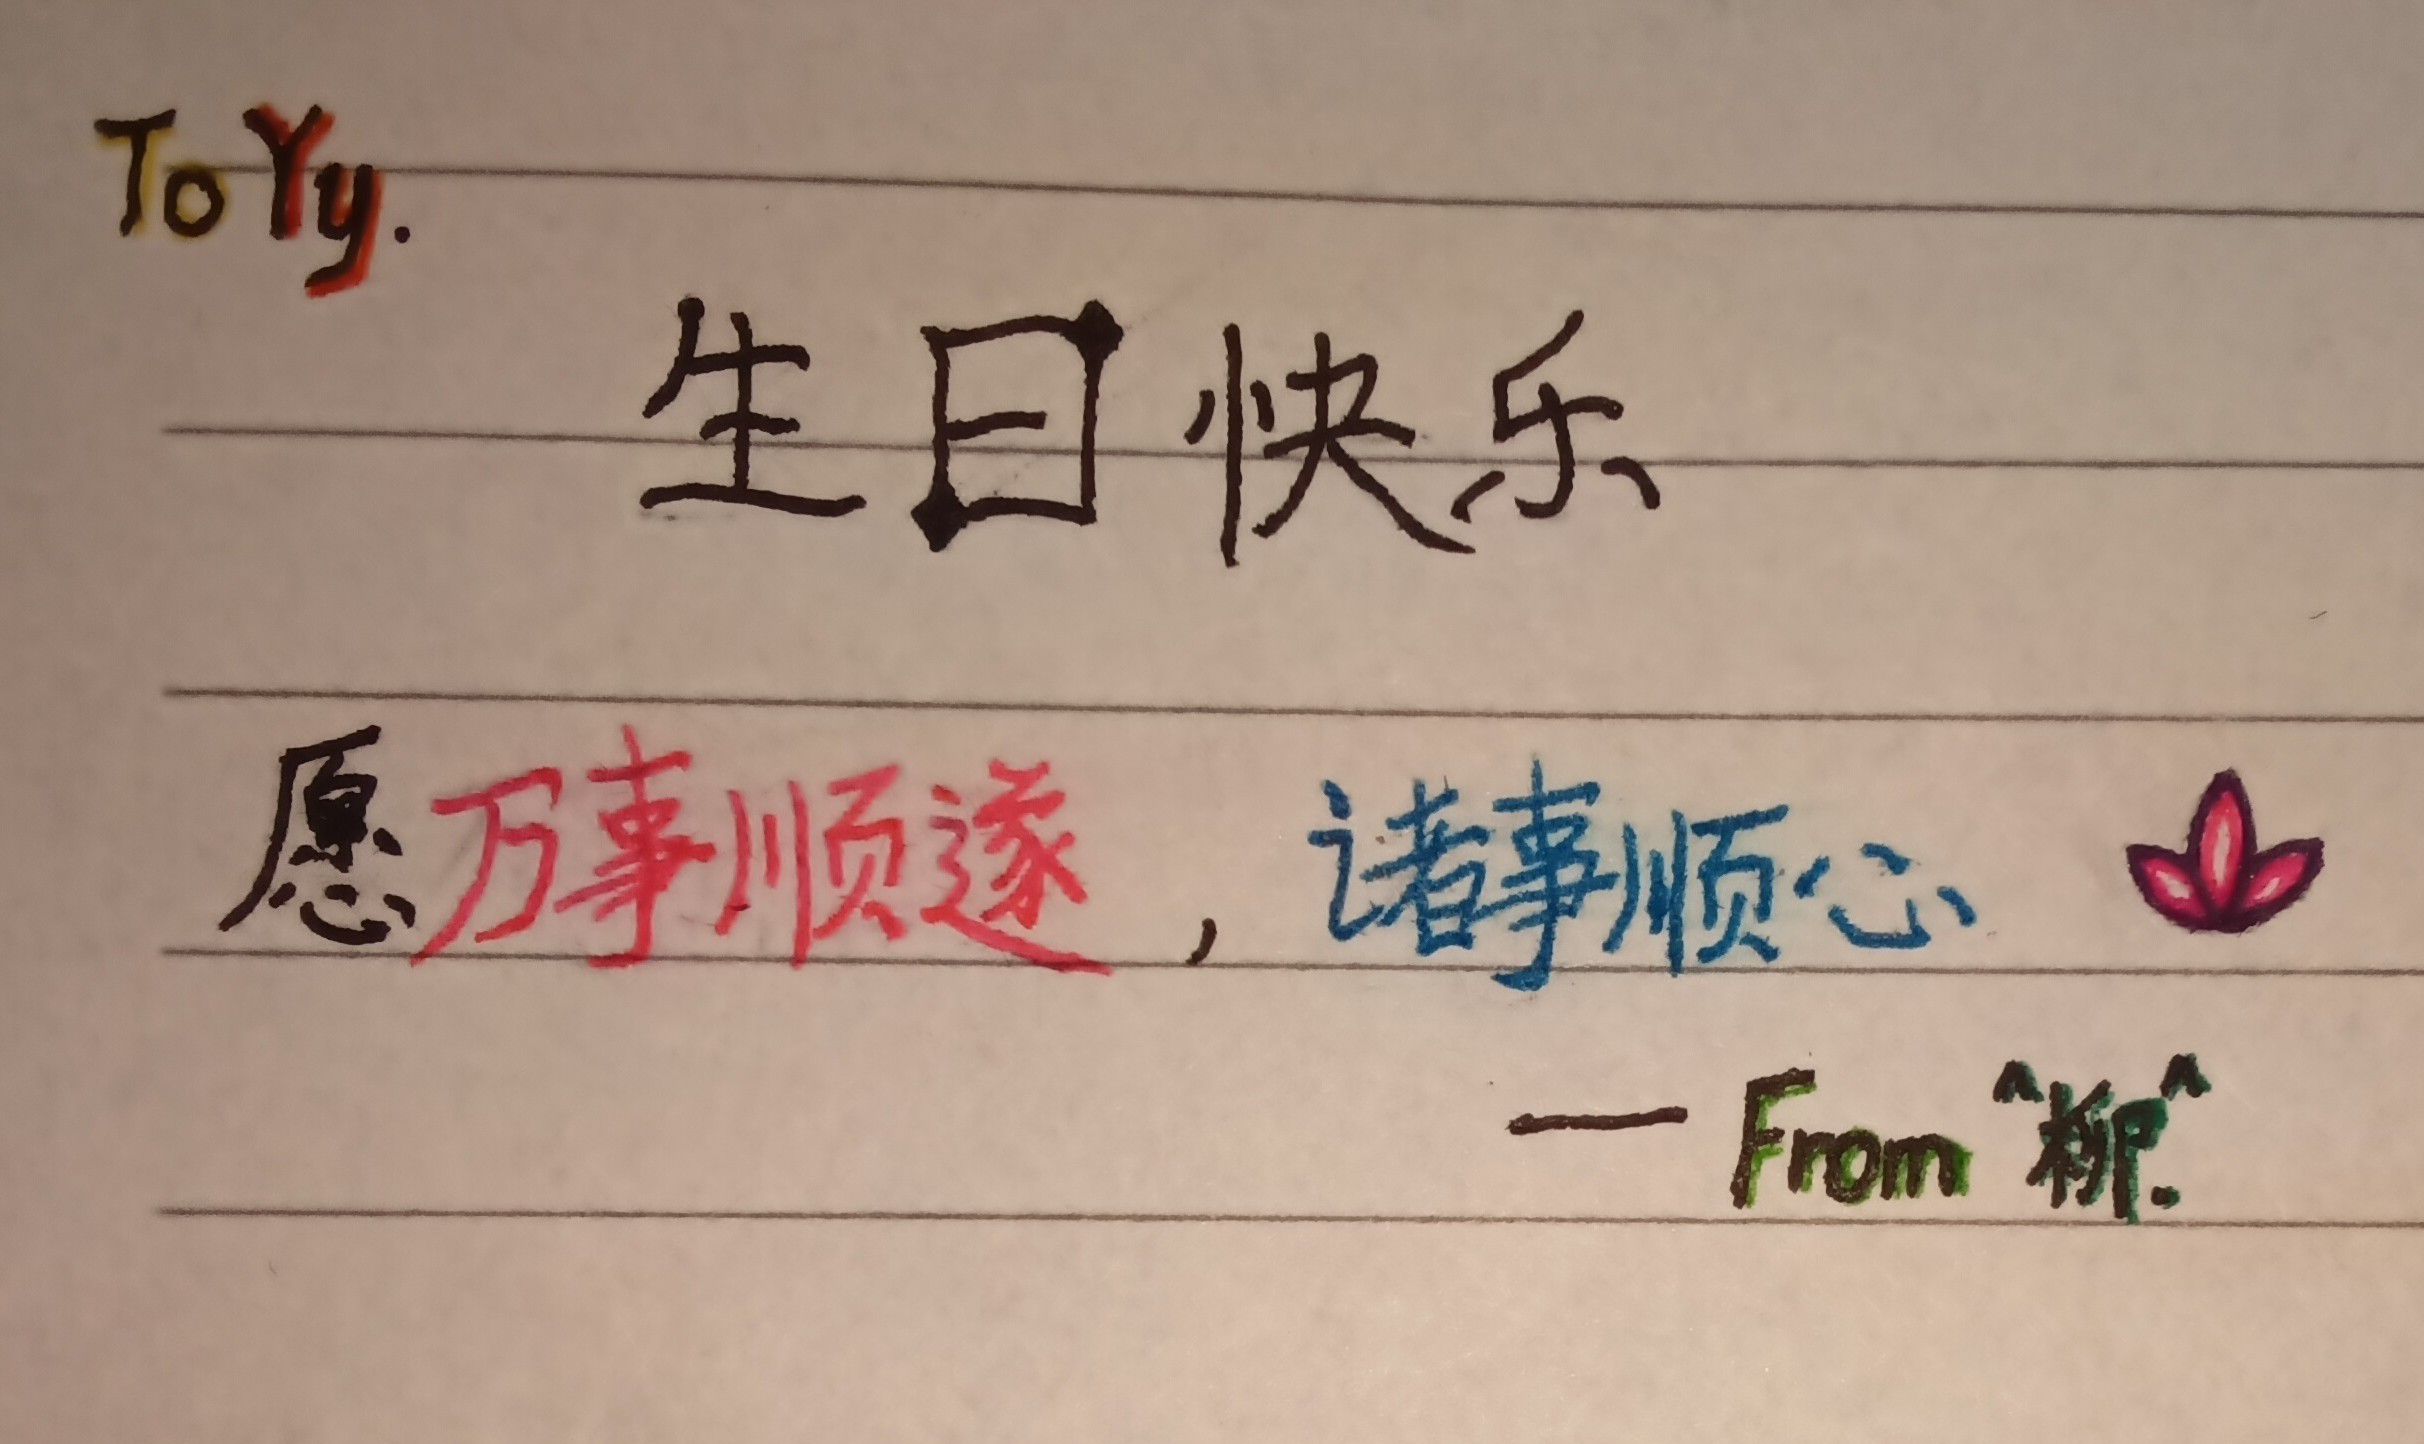 To Yy.
生日快乐
愿万事顺遂，诸事顺心
— From "柳".